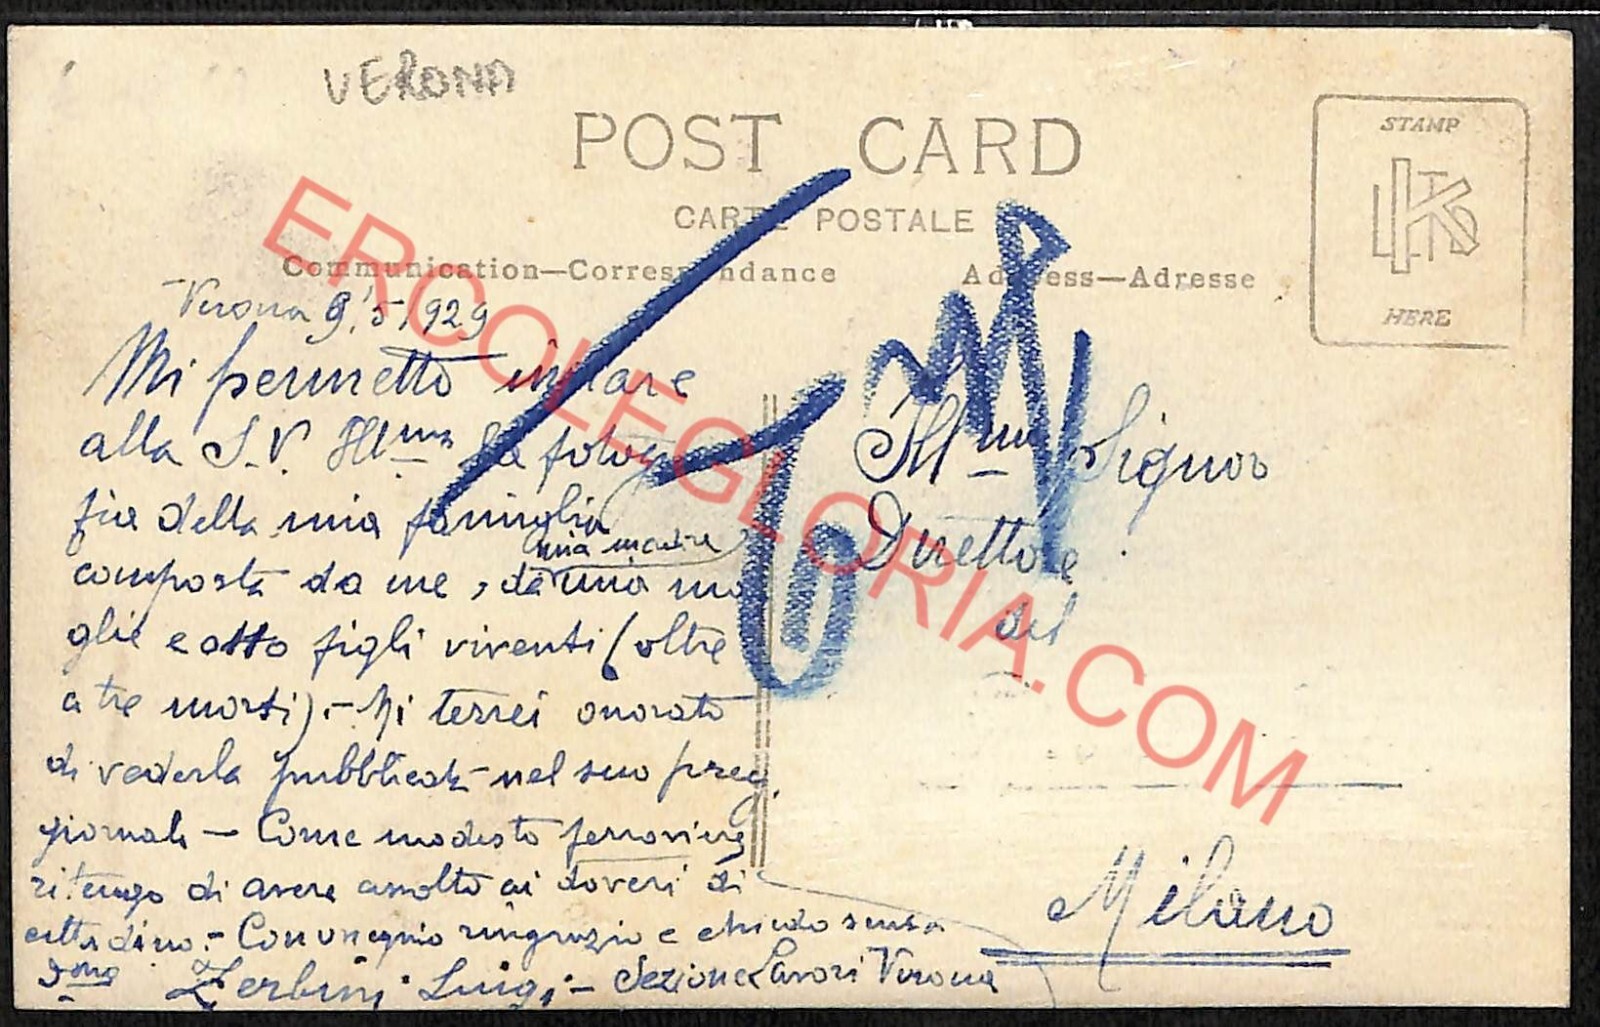 VERONA
POST CARD
CARTE POSTALE
Communication—Correspondance
Address—Adresse
STAMP
HERE
Verona 9.5.1929
Mi permetto inviare
alla S.V. Ill.ma la fotogra
fia della mia famiglia
mia madre
composta da me, da mia mo
glie e otto figli viventi (oltre
a tre morti).- Mi terrei onorato
di vederla pubblicata nel suo preg.
giornale — Come modesto ferroviere
ritengo di avere assolto ai doveri di
cittadino.- Con ossequio ringrazio e chiedo scusa
Zerbini Luigi - Sezione Lavori Verona
Ill.mo Signor
Direttore
del
Milano
ERCOLEGLORIA.COM